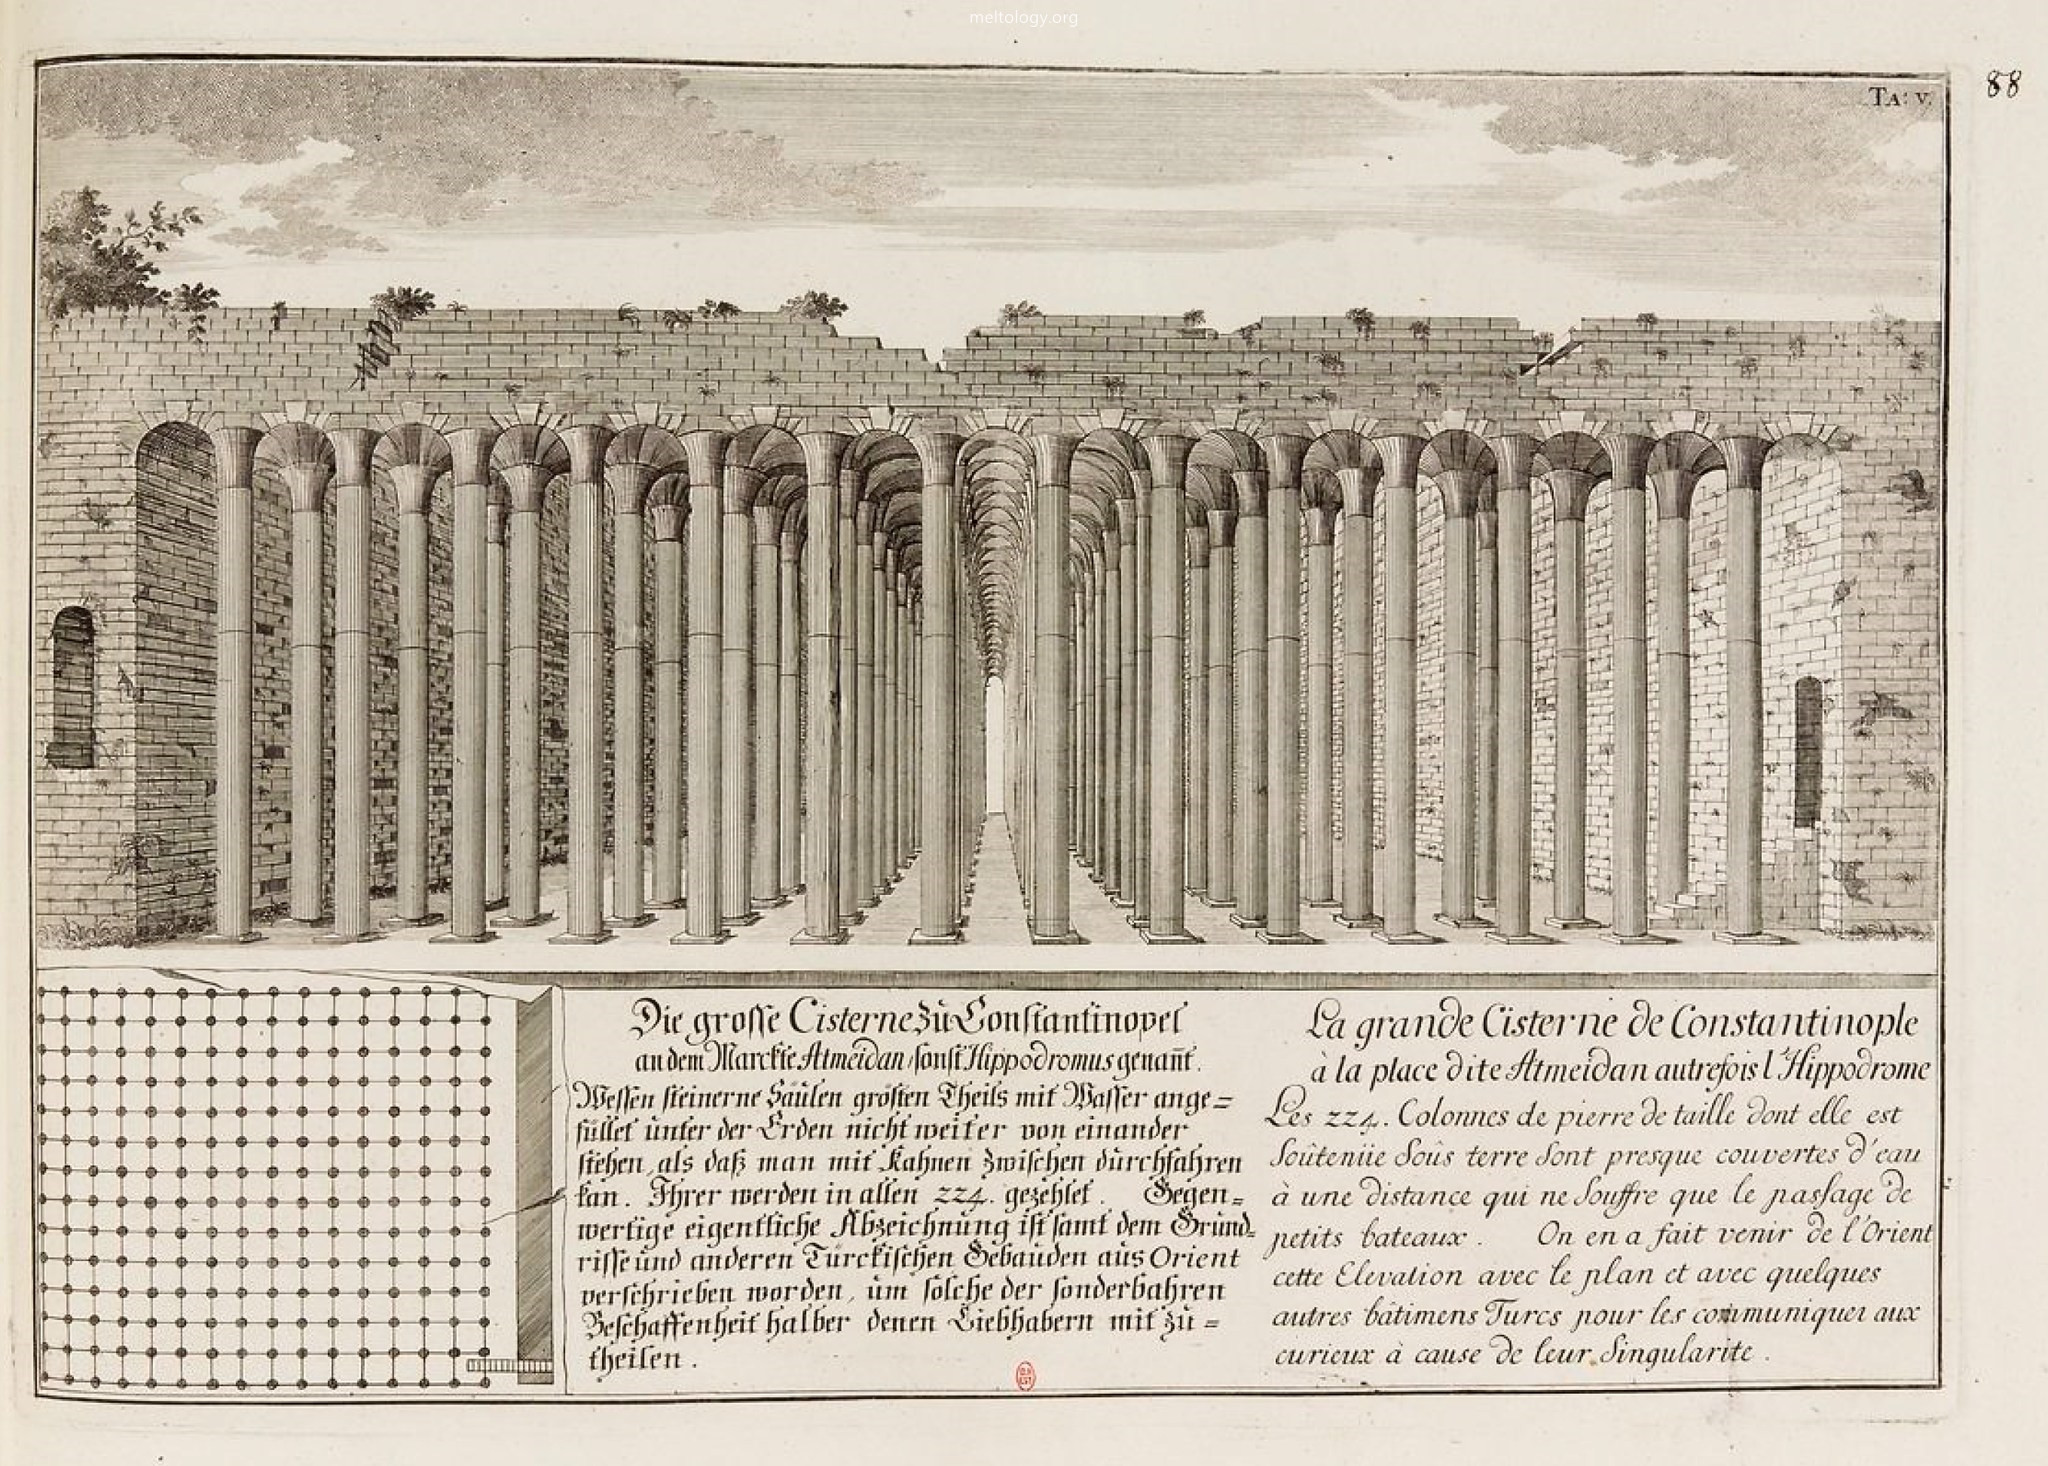 meltology.org
88
TA: V.
Die grosse Cisterne zu Constantinopel
an dem Marckte Atmeidan / sonst Hippodromus genañt.
Wessen steinerne Säulen grösten Theils mit Wasser ange=
füllet unter der Erden nicht weiter von einander
stehen, als daß man mit Kahnen zwischen durchfahren
kan. Ihrer werden in allen 224. gezehlet. Gegen=
wertige eigentliche Abzeichnung ist samt dem Grund=
risse und anderen Türckischen Gebäuden aus Orient
verschrieben worden, um solche der sonderbahren
Beschaffenheit halber denen Liebhabern mit zu=
theilen.
La grande Cisterne de Constantinople
à la place dite Atmeidan autrefois l'Hippodrome
Les 224. Colonnes de pierre de taille dont elle est
Soûtenüe Sous terre Sont presque couvertes d'eau
à une distance qui ne Souffre que le passage de
petits bateaux. On en a fait venir de l'Orient
cette Elevation avec le plan et avec quelques
autres bâtimens Turcs pour les communiquer aux
curieux à cause de leur Singularite.